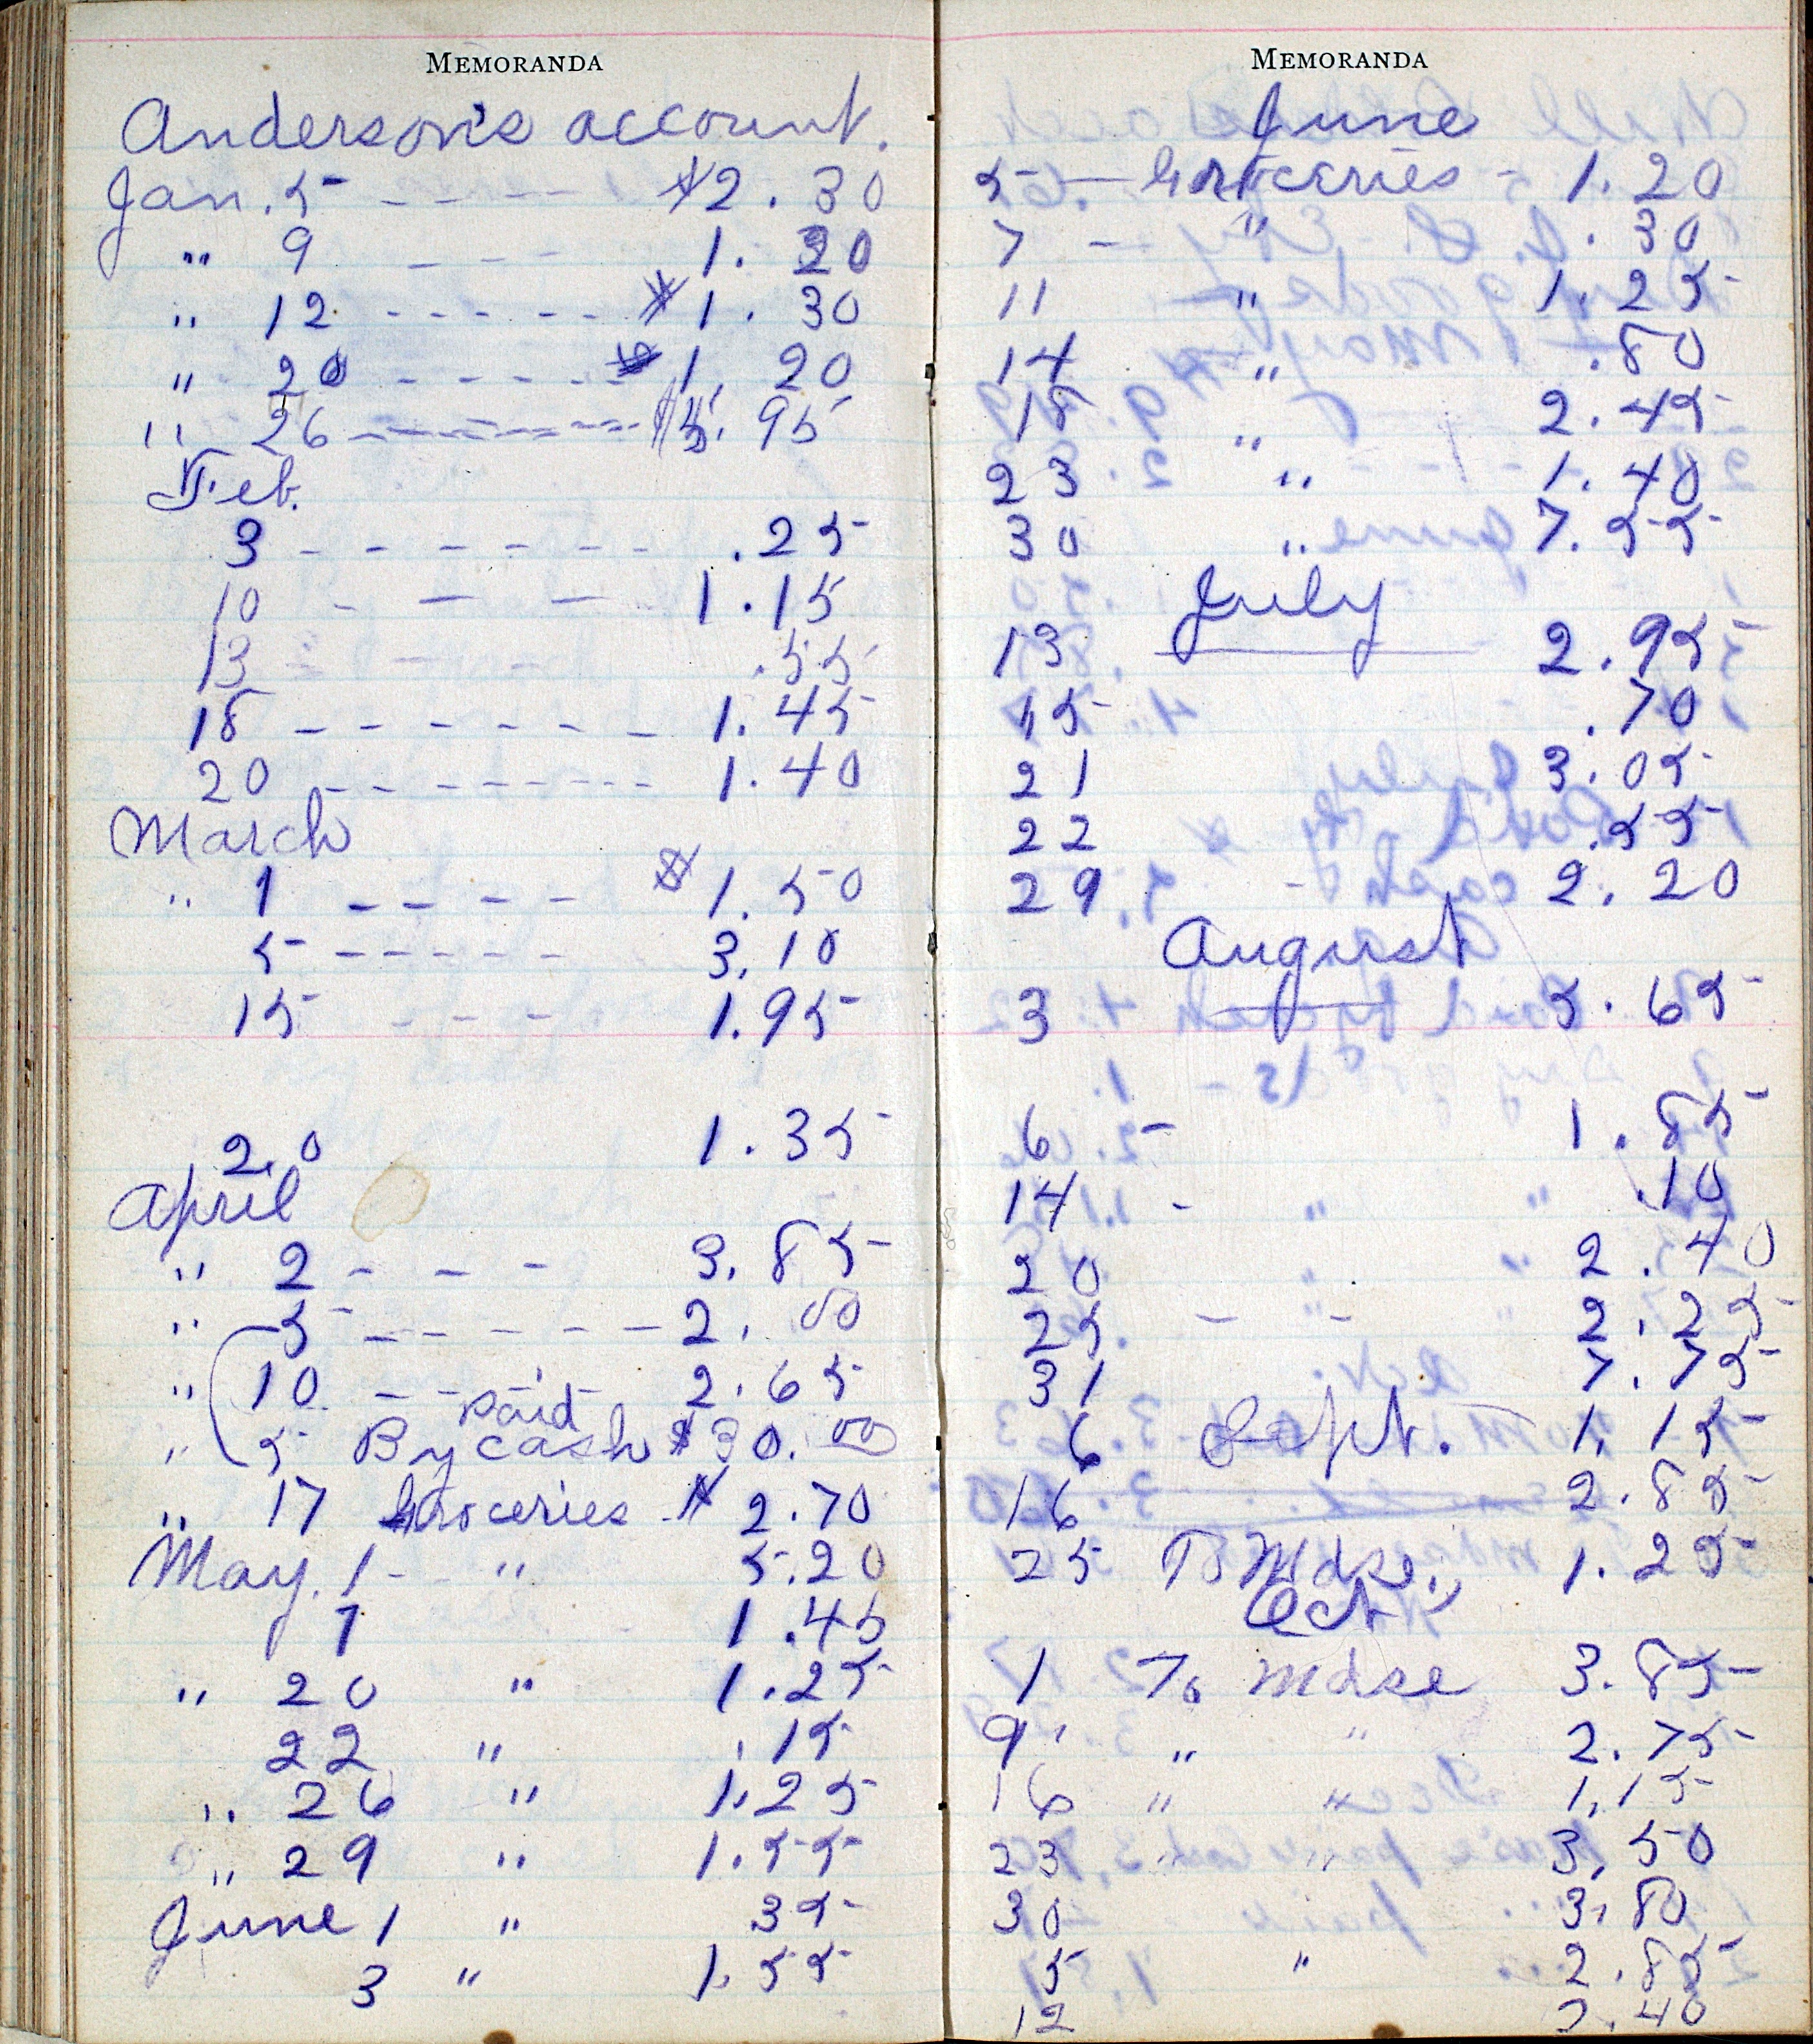 MEMORANDA
Anderson's account.
Jan. 5 - - - - $2.30
" 9 - - - 1.20
" 12 - - - - - $1.30
" 20 - - - - - $1.20
" 26 - - - - - - .95
Feb.
3 - - - - - - - .25
10 - - - 1.15
13 - - - .55
18 - - - - - - 1.45
20 - - - - - - - - 1.40
March
" 1 - - - - $1.50
5 - - - - - 3.10
15 - - - 1.95
20 1.35
April
" 2 - - - 3.85
" 5 - - - - - 2.00
" 10 - - - - 2.65
paid
" 5 By cash $30.00
" 17 Groceries $2.70
May. 1 - " 5.20
7 1.45
" 20 " 1.25
22 " .15
" 26 " 1.25
" 29 " 1.55
June 1 " 35
3 " 1.55
MEMORANDA
June
5 - Groceries - 1.20
7 - " .30
11 " 1.25
14 " .80
18 " 2.45
23 " 1.40
30 " 7.55
July
13 2.95
15 .70
21 3.05
22 .55
29 - 2.20
August
3 5.65
6 - 1.85
14 - .10
20 2.40
25 - - 2.25
31 7.75
6 Sept. 1.15
16 2.85
25 To Mdse., 1.25
Oct
1 To Mdse 3.85
9 " " 2.75
16 " " 1.15
23 " " 3.50
30 3.80
5 " 2.85
12 .40